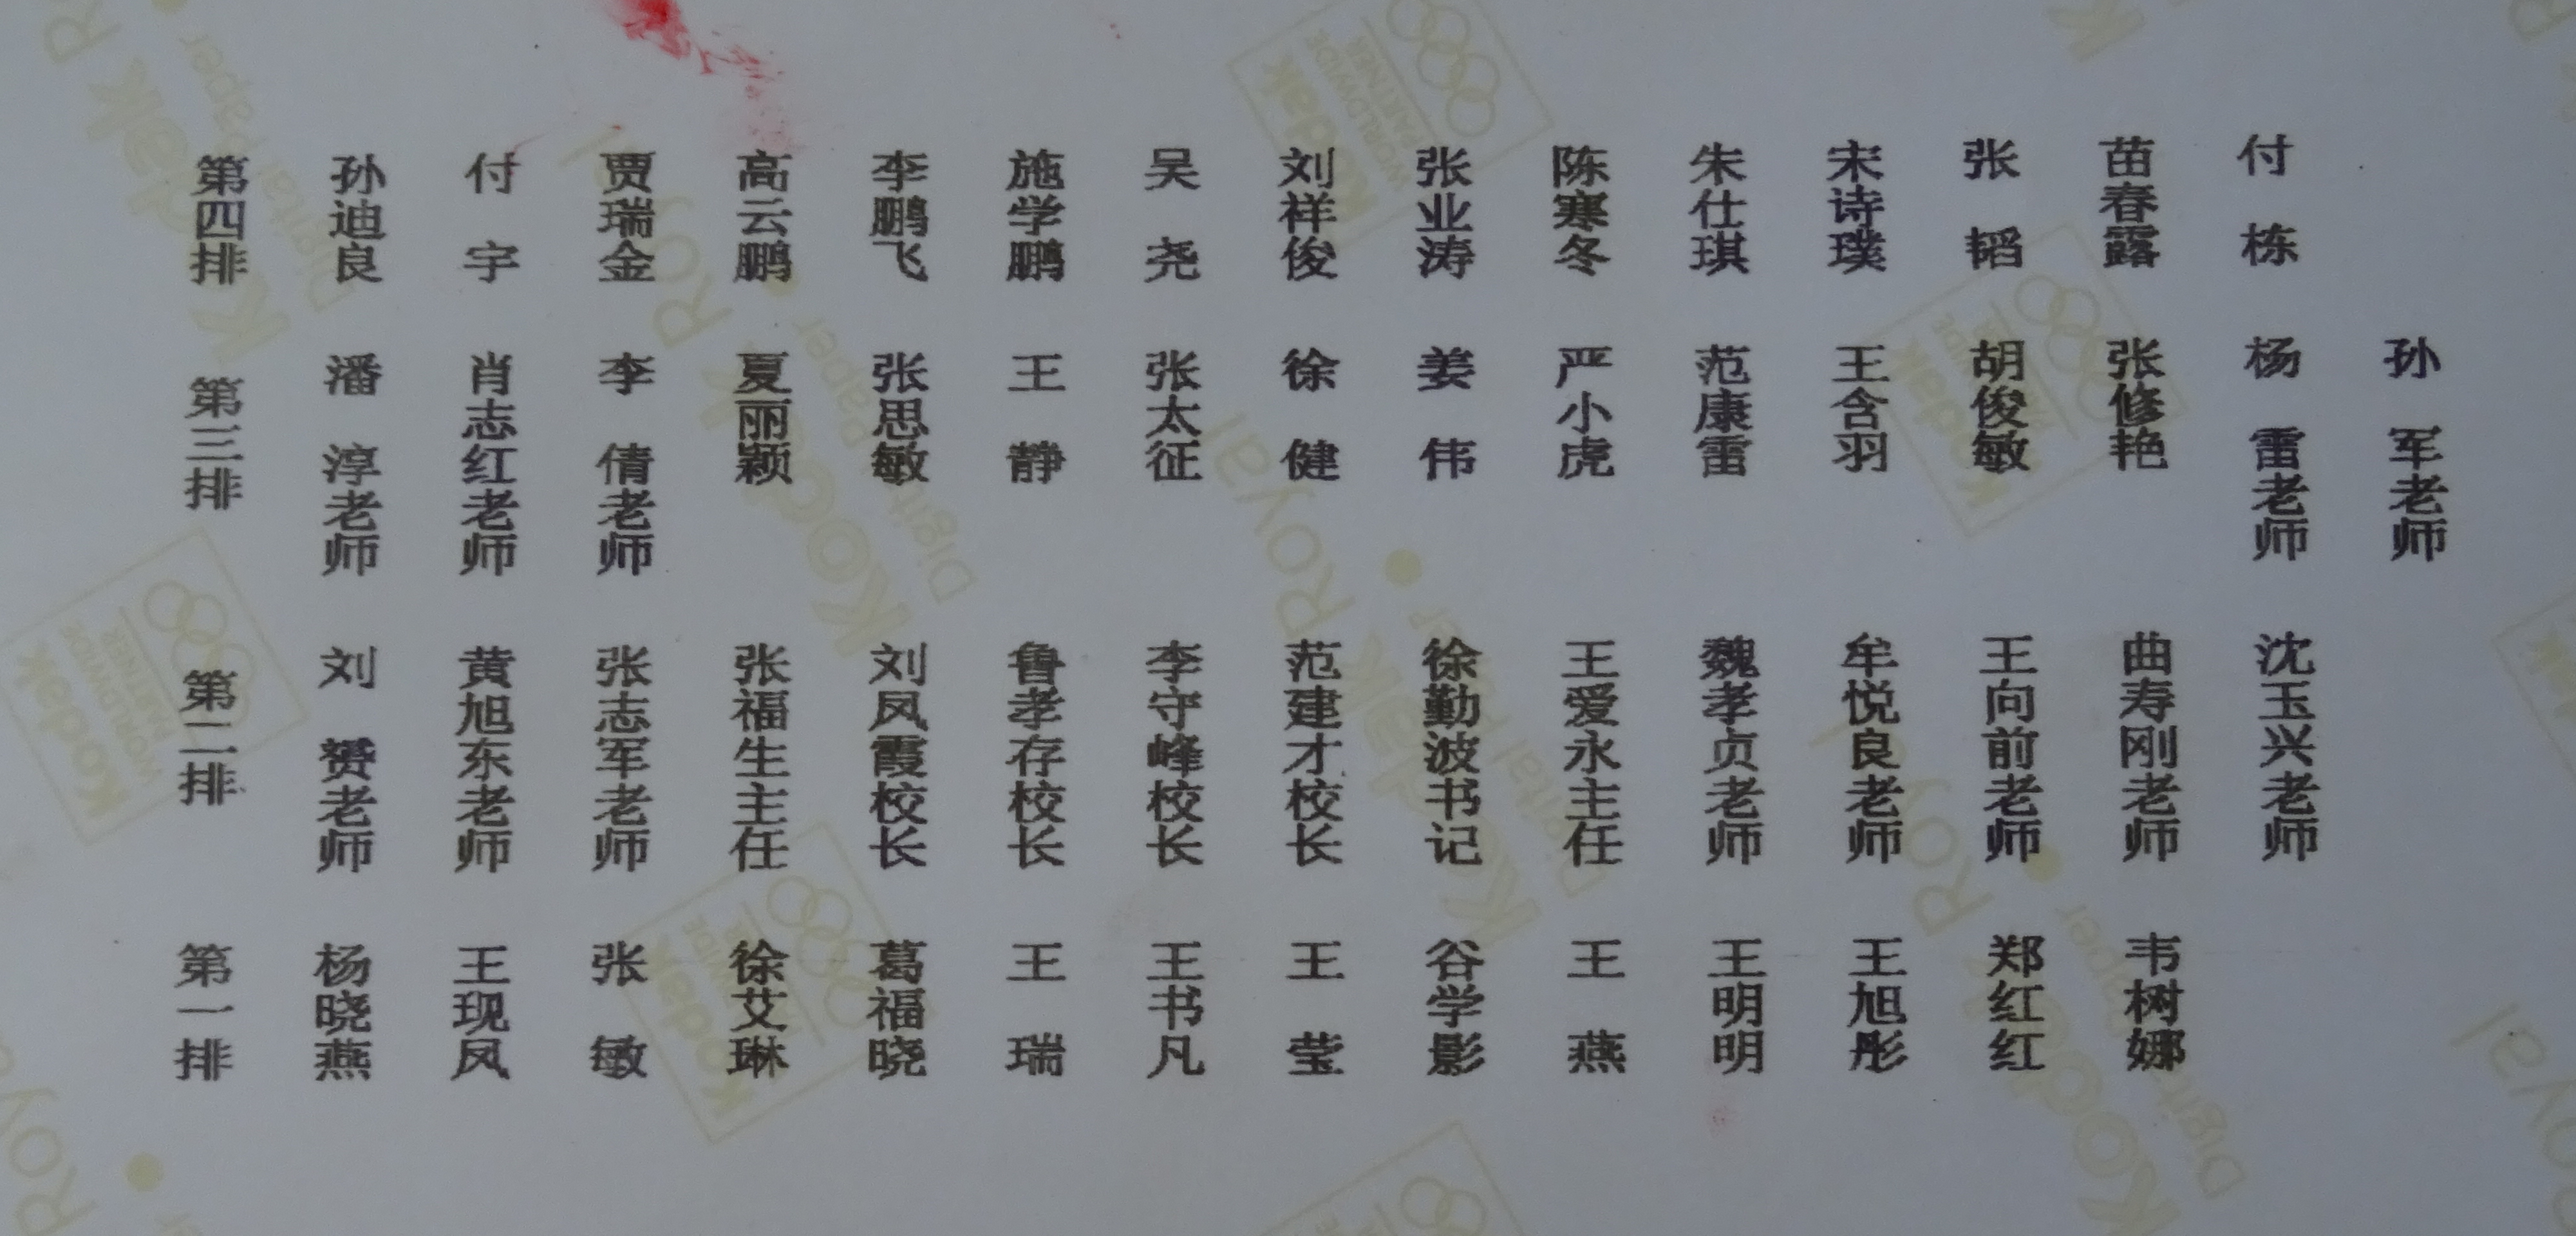 第四排 孙迪良 付宇 贾瑞金 高云鹏 李鹏飞 施学鹏 吴尧 刘祥俊 张业涛 陈寒冬 朱仕琪 宋诗璞 张韬 苗春露 付栋
第三排 潘淳老师 肖志红老师 李倩老师 夏丽颖 张思敏 王静 张太征 徐健 姜伟 严小虎 范康雷 王含羽 胡俊敏 张修艳 杨雷老师 孙军老师
第二排 刘赟老师 黄旭东老师 张志军老师 张福生主任 刘凤霞校长 鲁孝存校长 李守峰校长 范建才校长 徐勤波书记 王爱永主任 魏孝贞老师 牟悦良老师 王向前老师 曲寿刚老师 沈玉兴老师
第一排 杨晓燕 王现凤 张敏 徐艾琳 葛福晓 王瑞 王书凡 王莹 谷学影 王燕 王明明 王旭彤 郑红红 韦树娜
Kodak
Royal
Digital Paper
Kodak
WORLDWIDE
PARTNER